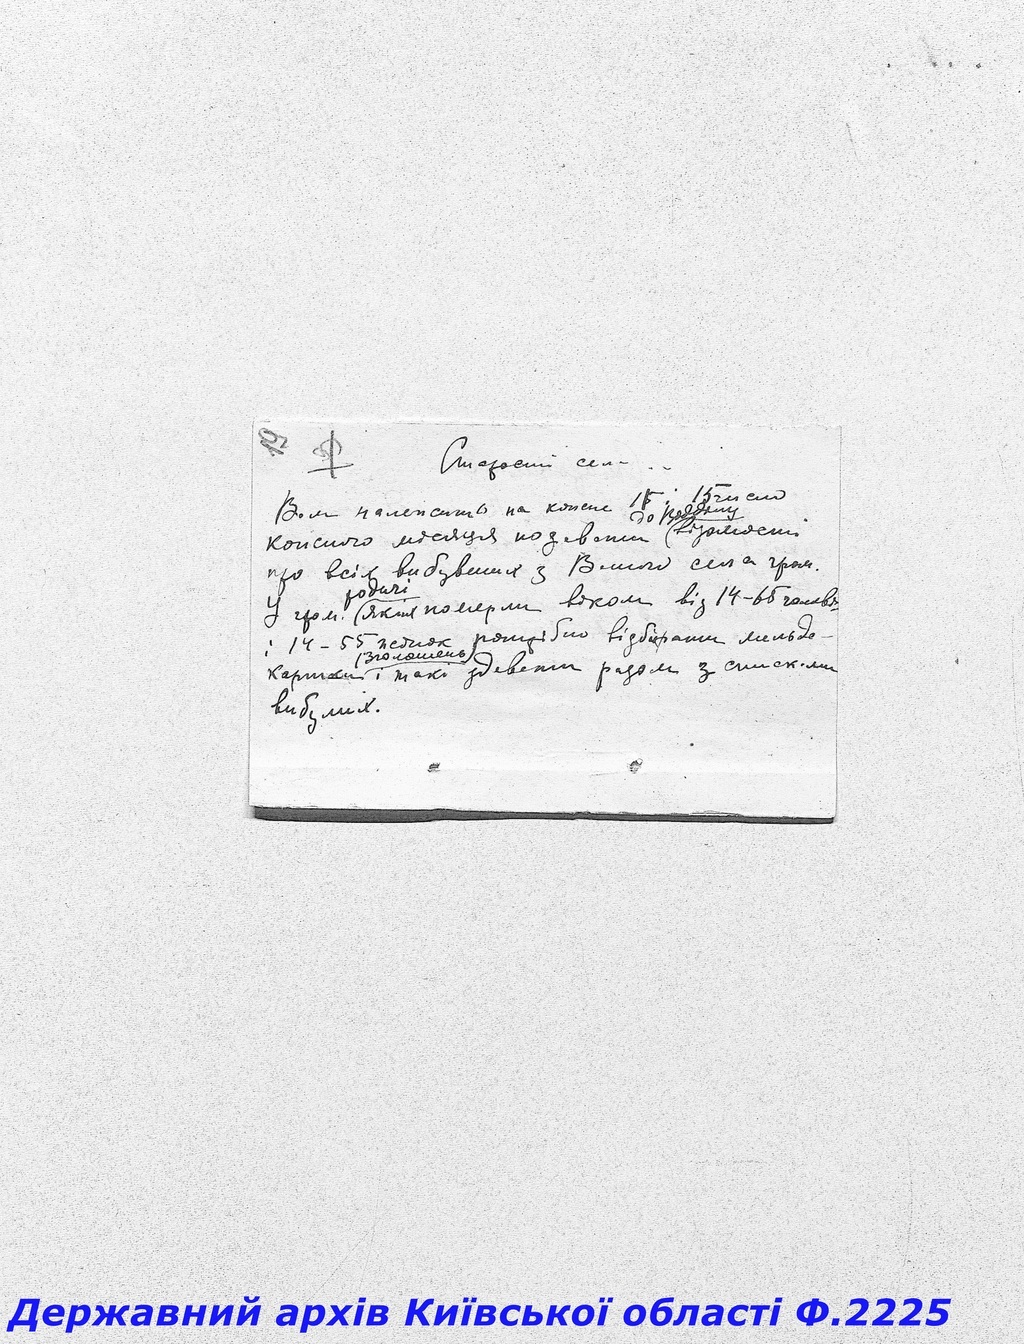 Старості села ...
Вам належить на кожне 15 число
до райому
кожного місяця подавати відомості
про всіх вибувших з Вашого села гром.
родичі
У гром. які померли віком від 14-65 чоловік
і 14-55 жінок потрібно відбирати мельде-
(зголошень)
картки і такі здавати разом з списками
вибулих.
Державний архів Київської області Ф.2225